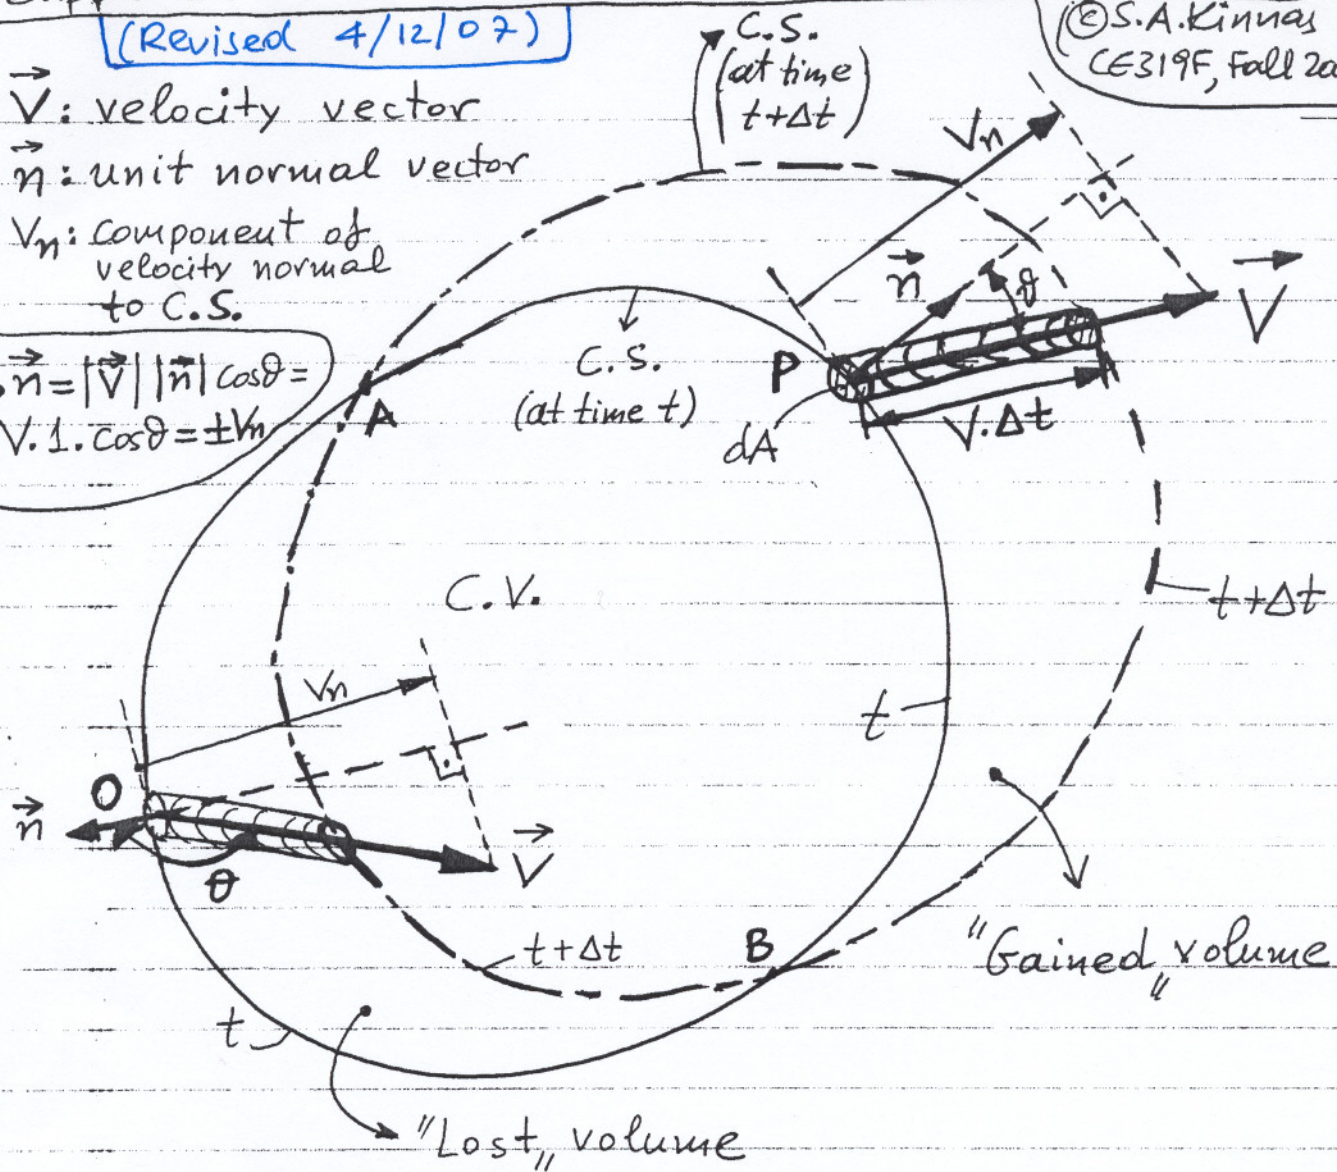 (Revised 4/12/07)
©S.A.Kinnas
CE319F, Fall
C.S.
(at time
t+Δt)
V⃗: velocity vector
n⃗: unit normal vector
Vn: component of
velocity normal
to C.S.
.n⃗=|V⃗||n⃗|cosϑ=
V.1.cosϑ=±Vn
Vn
n⃗
ϑ
V⃗
C.S.
(at time t)
P
dA
V.Δt
A
C.V.
t+Δt
Vn
t
O
n⃗
θ
V⃗
t+Δt
B
"Gained„ volume
t
"Lost„ volume